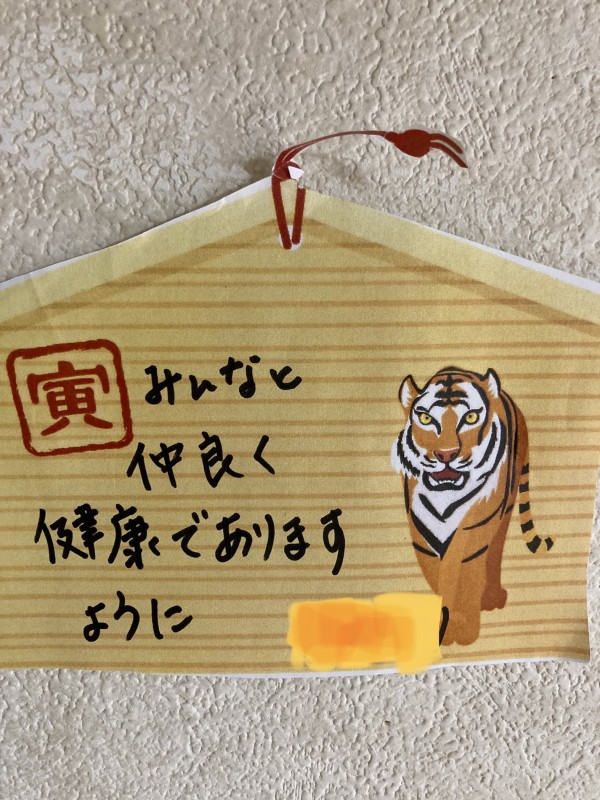 寅
みんなと
仲良く
健康であります
ように